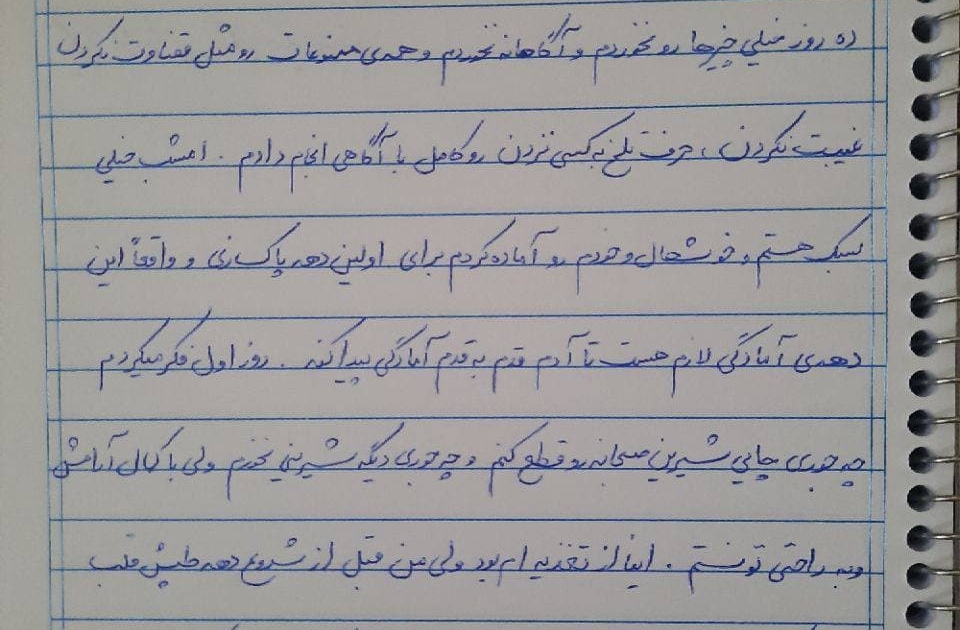 ده روز خیلی چیزها رو نخوردم و آگاهانه نخوردم و همه‌ی ممنوعات رو مثل قضاوت نکردن
غیبت نکردن، حرف تلخ به کسی نزدن رو کامل با آگاهی انجام دادم. امشب خیلی
سبک هستم و خوشحال و خودم رو آماده کردم برای اولین دهه پاکسازی و واقعاً این
دهه‌ی آمادگی لازم هست تا آدم قدم به قدم آمادگی پیدا کنه. روز اول فکر میکردم
چه جوری چایی شیرین صبحانه رو قطع کنم و چه جوری دیگه شیرینی نخورم ولی با کمال آرامش
و به راحتی تونستم. اینا از تغذیه ام بود ولی من قبل از شروع دهه طپش قلب